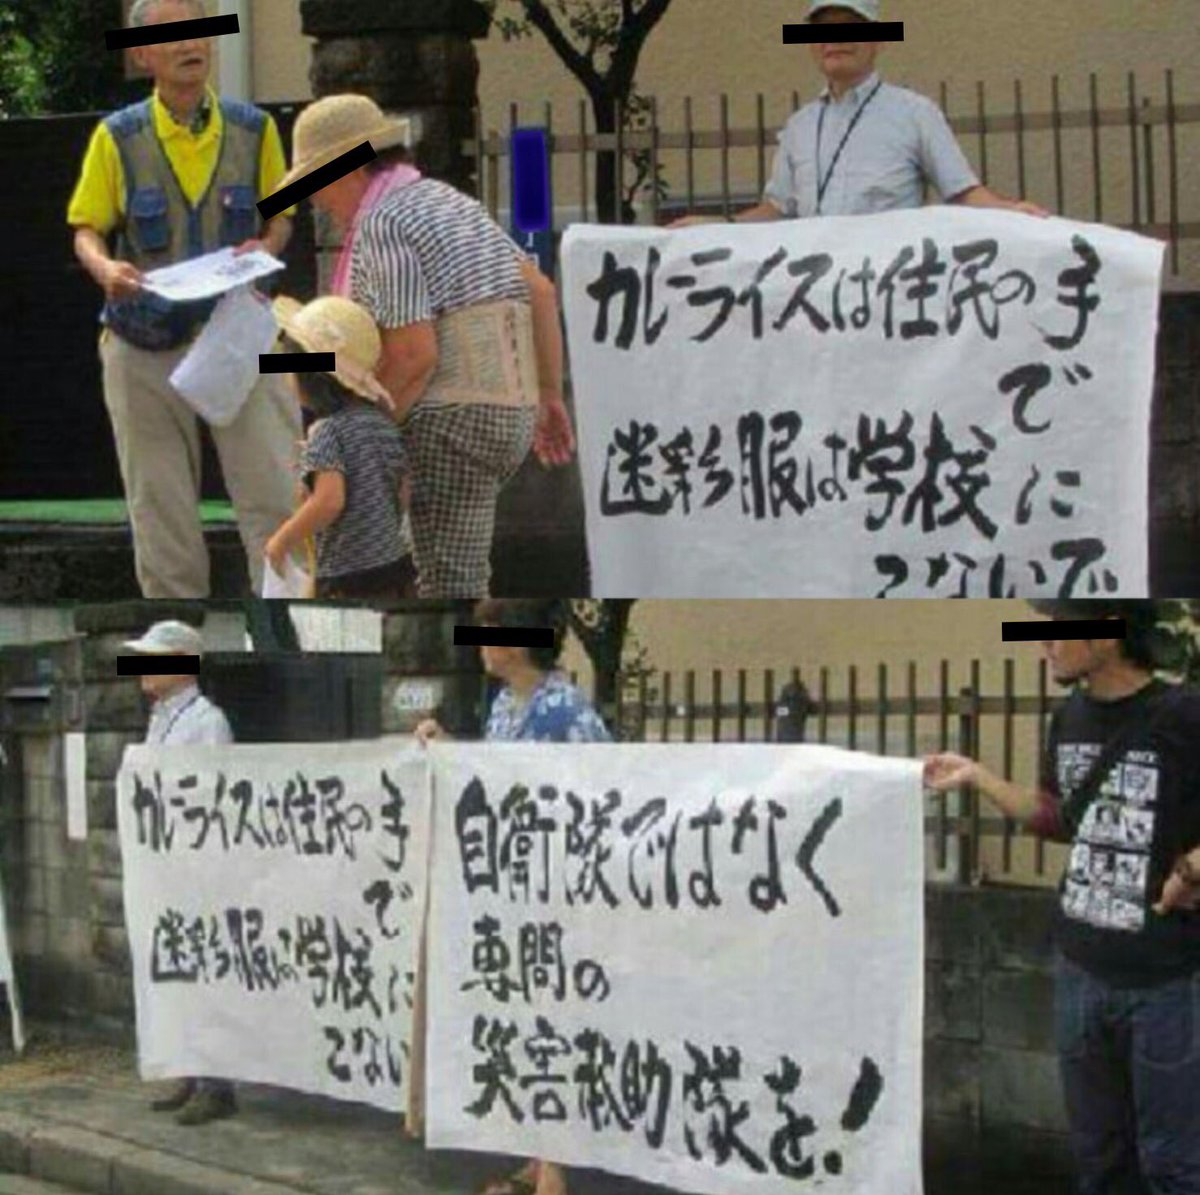 カレーライスは住民の手
で
迷彩服は学校に
こないで
カレーライスは住民の手
で
迷彩服は学校に
こない
自衛隊ではなく
専門の
災害救助隊を!